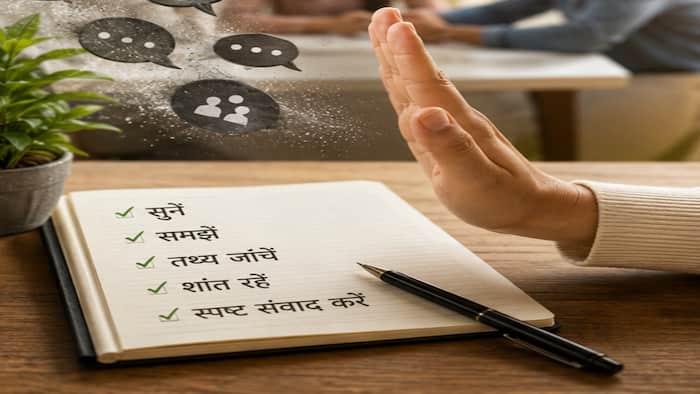 सुनें
समझें
तथ्य जांचें
शांत रहें
स्पष्ट संवाद करें